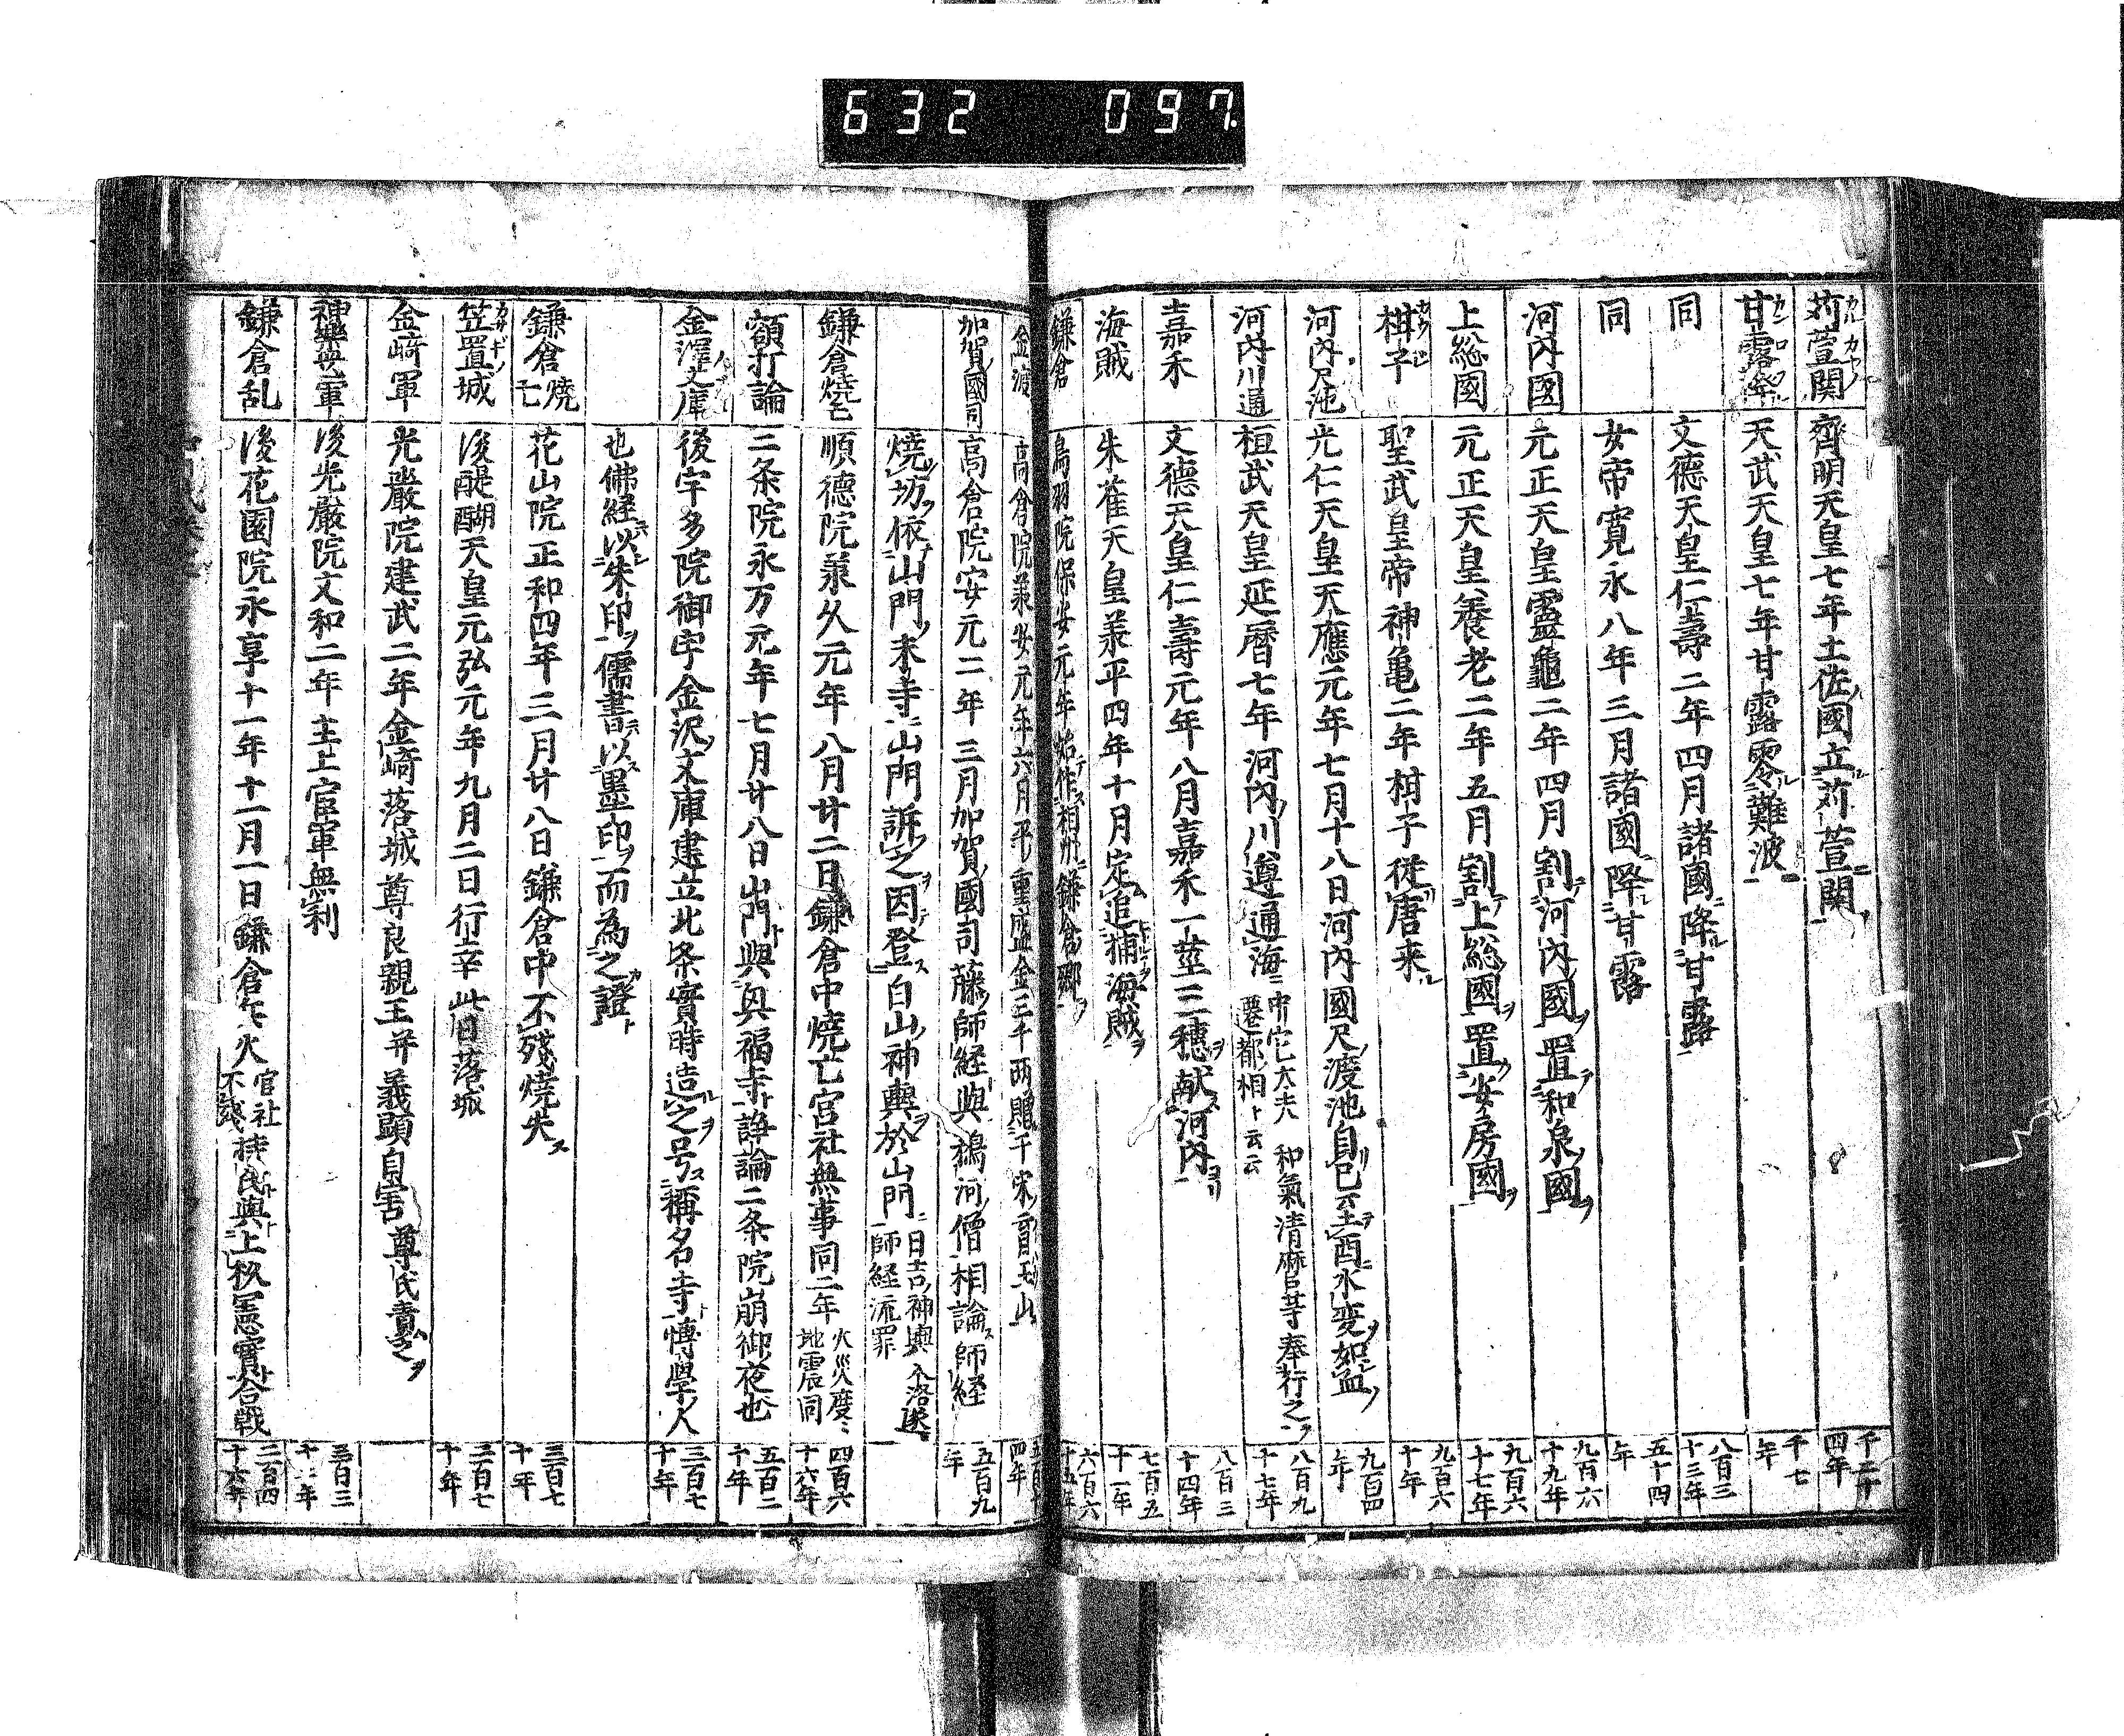 632 097.
苅萱関 齊明天皇七年土佐國立苅萱関 千二十四年
甘露降 天武天皇七年甘露零難波 千七年
同 文德天皇仁壽二年四月諸國降甘露 八百三十三年
同 女帝寛永八年三月諸國降甘露 五十四年
河内國 元正天皇靈龜二年四月割河内國置和泉國 九百六十九年
上総國 元正天皇養老二年五月割上総國置安房國 九百六十七年
柑子 聖武皇帝神亀二年柑子従唐来 九百六十年
河内尺池 光仁天皇天應元年七月十八日河内國尺渡池自巳至酉水変如血 九百四年
河内川通 桓武天皇延暦七年河内川遵通海 中宮大夫和氣清麿等奉行之 遷都相ト云云 八百九十七年
嘉禾 文德天皇仁壽元年八月嘉禾一莖三穗献河内 八百三十四年
海賊 朱雀天皇羕平四年十月定追捕海賊 七百五十一年
鎌倉 鳥羽院保安元年始作相州鎌倉郷 六百六十五年
金波 高倉院羕安元年六月平重盛金三千両贈于宋育王山
加賀國司 高倉院安元二年三月加賀國司藤師経與鵜河僧相論師経 五百九年
焼坊依山門末寺山門訴之因登白山神輿於山門 日吉神輿入洛遂師経流罪
鎌倉焼亡 順德院羕久元年八月廿二日鎌倉中焼亡宮社無事同二年 火災度々地震同 四百六十六年
額打論 二条院永万元年七月廿八日山門與興福寺諍論二条院崩御夜也 五百二十年
金澤文庫 後宇多院御宇金沢文庫建立北条實時造之号稱名寺博學人 三百七十年
也佛経以朱印儒書以墨印而為之證
鎌倉焼亡 花山院正和四年三月廿八日鎌倉中不残焼失 三百七十年
笠置城 後醍醐天皇元弘元年九月二日行幸此日落城 三百七十年
金崎軍 光嚴院建武二年金崎落城尊良親王并義顕自害尊氏責之
神樂軍 後光嚴院文和二年主上官軍無利
鎌倉乱 後花園院永享十一年十一月一日鎌倉午火 官社不残 持氏與上杉憲實合戦 二百四十六年